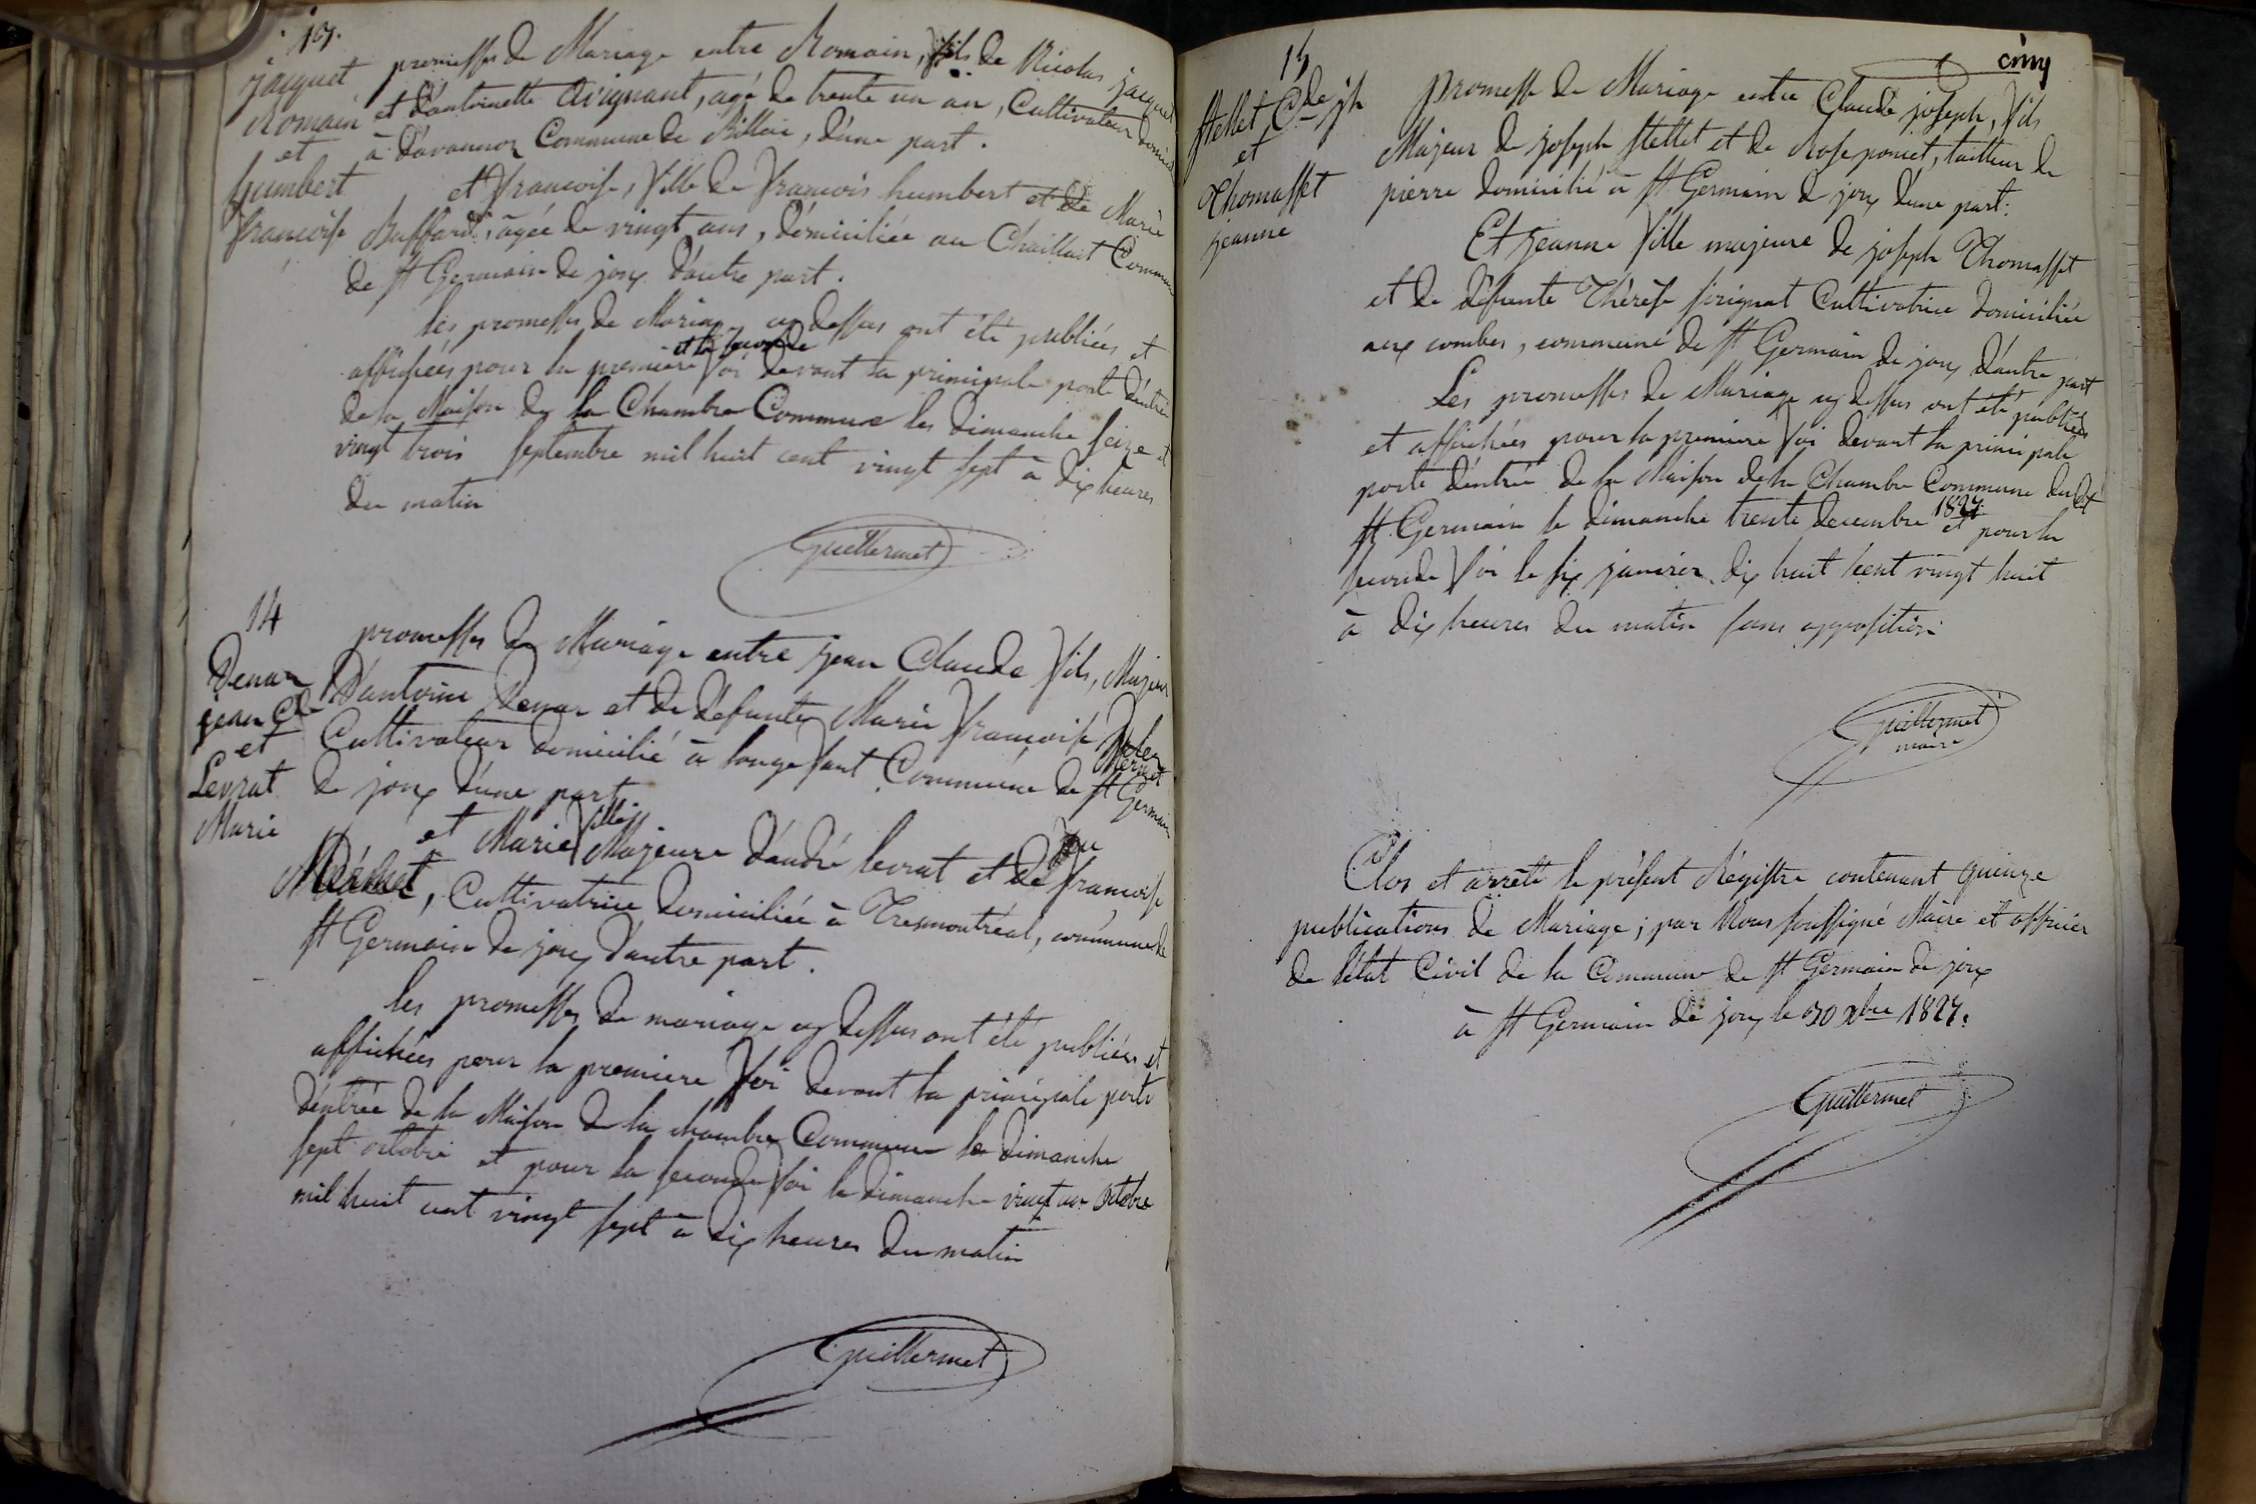 13.
jacquet
Romain
et
humbert
françoise
promesses de Mariage entre Romain, fils de Nicolas jacquet
et d'antoinette Avignant, agé de trente un an, Cultivateur domicilié
à d'avannoz Commune de Billiat, d'une part.
et françoise, fille de françois humbert et de Marie
Buffard, agée de vingt ans, domiciliée au Chaillait Commune
de st Germain de joux d'autre part.
les promesses de Mariage cy dessus ont été publiées et
affichées pour la premiere et la seconde foi devant la principale porte d'entrée
de la Maison de la Chambre Commune les dimanche seize et
vingt trois septembre mil huit cent vingt sept à dix heures
du matin
Guillermet
14
Denar
jean Cde
et
Levrat
Marie
promesses de Mariage entre jean Claude fils, Majeur
d'antoine Denar et de défunte Marie françoise Mermet
Cultivateur domicilié à longefant Commune de st Germain
de joux d'une part
et Marie fille Majeure d'andré levrat et de feu françoise
, Cultivatrice domiciliée à Tresmontréal, commune de
st Germain de joux d'autre part.
les promesses de mariage cy dessus ont été publiées et
affichées pour la premiere foi devant la principale porte
d'entrée de la Maison de la chambre Commune le dimanche
sept octobre et pour la seconde foi le dimanche vingt un octobre
mil huit cent vingt sept à dix heures du matin
Guillermet
cinq
15
stellet Cde jh
et
Thomasset
jeanne
Promesse de Mariage entre Claude joseph, fils
Majeur de joseph stellet et de Rose poncet, tailleur de
pierre domicilié à st Germain de joux d'une part.
Et jeanne fille majeure de joseph Thomasset
et de défunte Thérèse sirignat Cultivatrice domiciliée
aux combes, commune de st Germain de joux d'autre part
Les promesses de Mariage cy dessus ont été publiées
et affichées pour la premiere foi devant la principale
porte d'entrée de la Maison de la Chambre Commune dudit
st Germain le dimanche trente decembre 1827 et pour la
seconde foi le six janvier dix huit cent vingt huit
à dix heures du matin sans opposition
Guillermet
maire
Clos et arrêté le présent Régistre contenant quinze
publications de Mariage; par Nous soussigné Maire et officier
de l'état Civil de la Commune de st Germain de joux
à st Germain de joux le 30 xbre 1827.
Guillermet